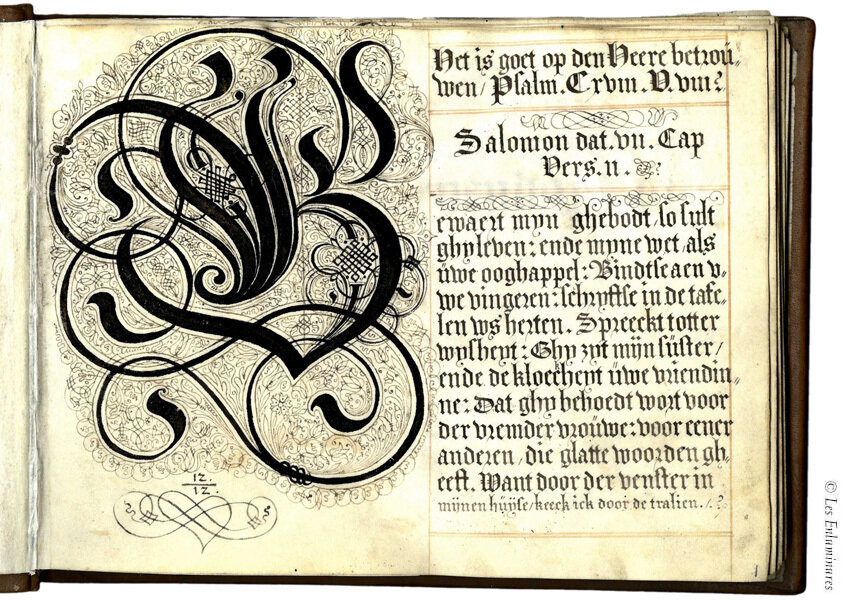 B
12.
12.
Het is goet op den Heere betroü„
wen / Psalm. Cxviii. V. viii.
Salomon dat. vii. Cap
Vers. ii.
ewaert myn ghebodt / so sult
ghy leven: ende myne wet / als
üwe ooghappel: Bindtse aen v„
we vingeren: schryftse in de tafe„
len vvs herten. Spreeckt totter
wysheyt: Ghy zyt mijn süster /
ende de kloecheyt üwe vriendin„
ne: Dat ghy behoedt wort voor
der vremder vroüwe: voor eener
anderen, die glatte woorden gh„
eeft. Want door der venster in
mijnen hüyse / keeck ick door de tralien. /.
1
© Les Enluminures